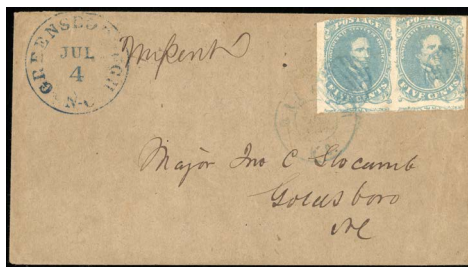 GREENSBOROUGH
JUL
4
N.C
POSTAGE POSTAGE
FIVE CENTS FIVE CENTS
Major Jno C Slocumb
Goldsboro
NC